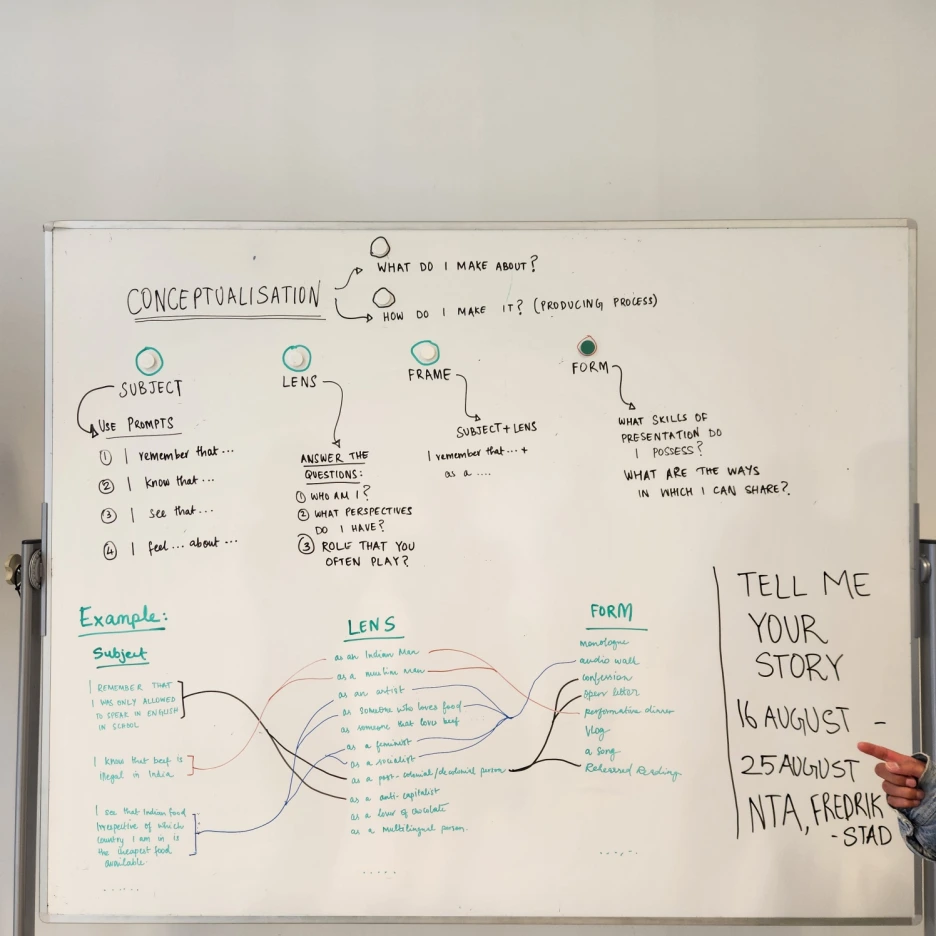 CONCEPTUALISATION
WHAT DO I MAKE ABOUT?
HOW DO I MAKE IT? (PRODUCING PROCESS)
SUBJECT
USE PROMPTS
① I remember that...
② I know that...
③ I see that...
④ I feel... about...
LENS
ANSWER THE
QUESTIONS:
① WHO AM I?
② WHAT PERSPECTIVES
DO I HAVE?
③ ROLE THAT YOU
OFTEN PLAY?
FRAME
SUBJECT + LENS
I remember that... +
as a ....
FORM
WHAT SKILLS OF
PRESENTATION DO
I POSSESS?
WHAT ARE THE WAYS
IN WHICH I CAN SHARE?
Example:
Subject
I REMEMBER THAT
I WAS ONLY ALLOWED
TO SPEAK IN ENGLISH
IN SCHOOL
I know that beef is
illegal in India
I see that Indian food
irrespective of which
country I am in is
the cheapest food
available
......
LENS
as an Indian Man
as a muslim man
as an artist
as someone who loves food
as someone that loves beef
as a feminist
as a socialist
as a post-colonial/decolonial person
as a anti-capitalist
as a lover of chocolate
as a multilingual person
.....
FORM
monologue
audio walk
confession
open letter
performative dinner
Vlog
a song
Rehearsed Reading
......
TELL ME
YOUR
STORY
16 AUGUST -
25 AUGUST
NTA, FREDRIK
- STAD